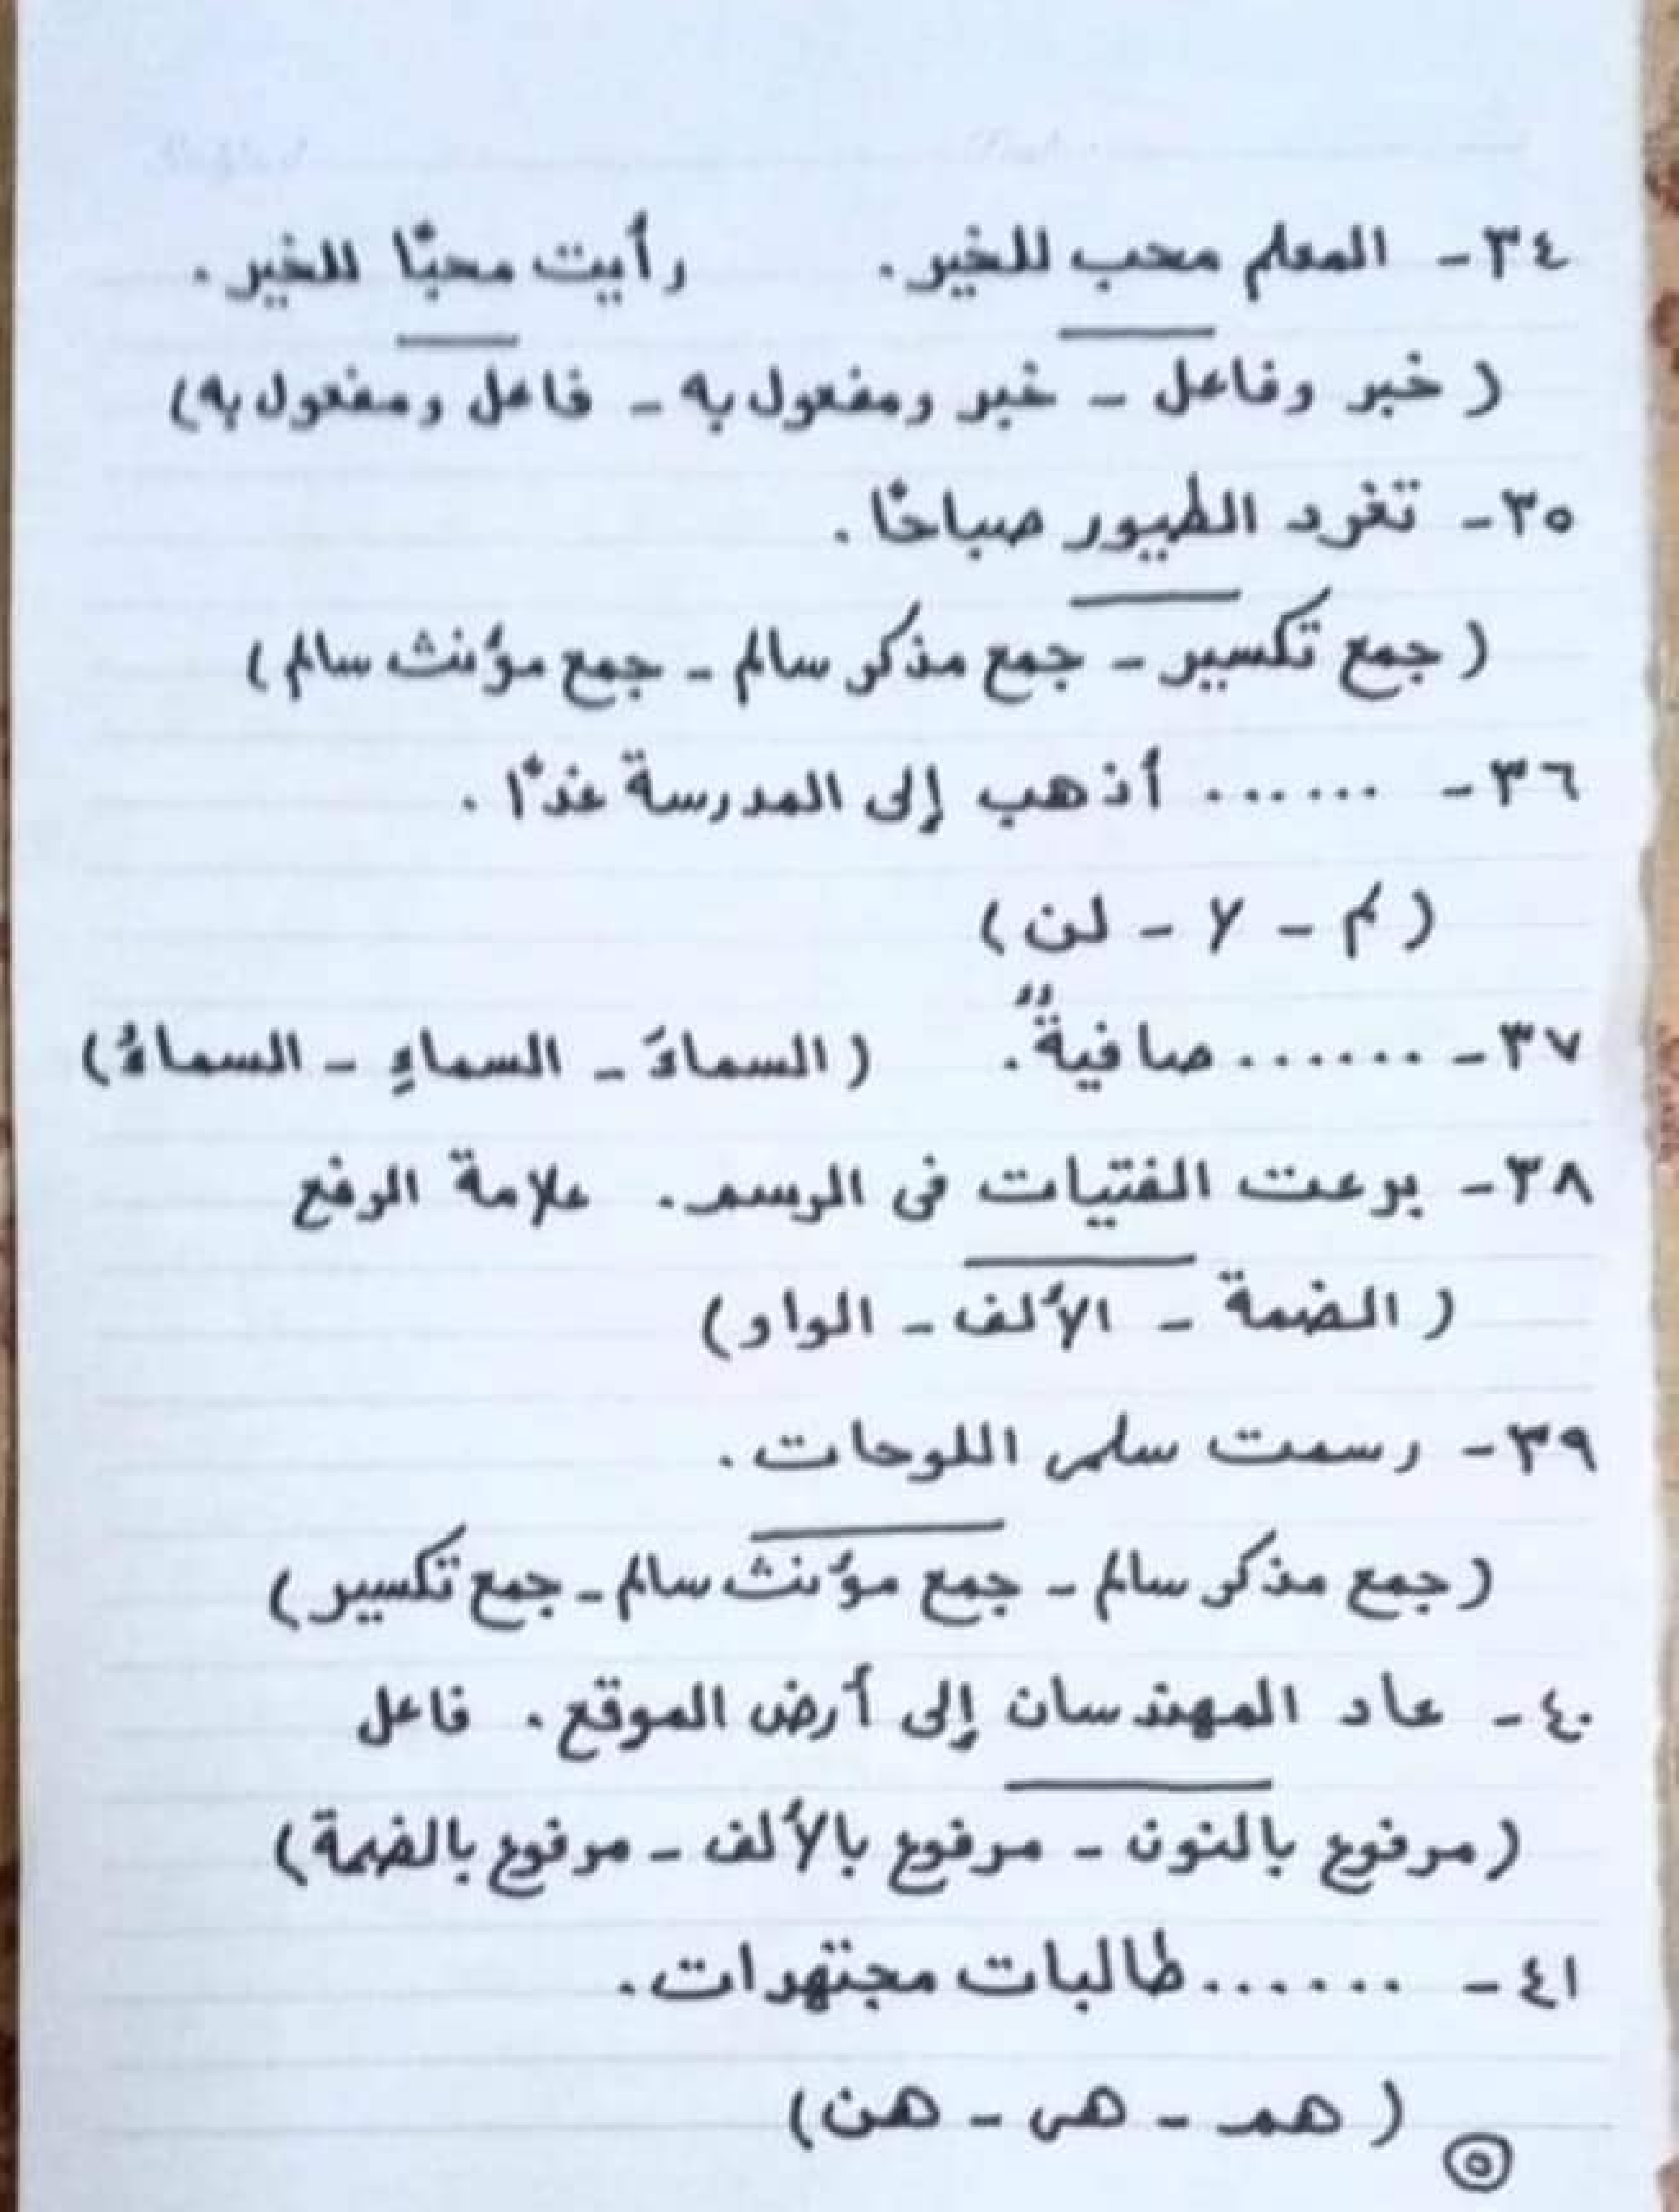 ٣٤- المعلم محب للخير. رأيت محبًا للخير.
( خبر وفاعل - خبر ومفعول به - فاعل ومفعول به)
٣٥- تغرد الطيور صباحًا.
( جمع تكسير - جمع مذكر سالم - جمع مؤنث سالم )
٣٦- ...... أذهب إلى المدرسة غدًا.
( لم - لا - لن )
٣٧- ...... صافيةٌ. ( السماءَ - السماءِ - السماءُ )
٣٨- برعت الفتيات فى الرسم. علامة الرفع
( الضمة - الألف - الواو )
٣٩- رسمت سلمى اللوحات.
(جمع مذكر سالم - جمع مؤنث سالم - جمع تكسير )
٤٠- عاد المهندسان إلى أرض الموقع. فاعل
(مرفوع بالنون - مرفوع بالألف - مرفوع بالضمة)
٤١- ...... طالبات مجتهدات.
( هم - هى - هن )
٥